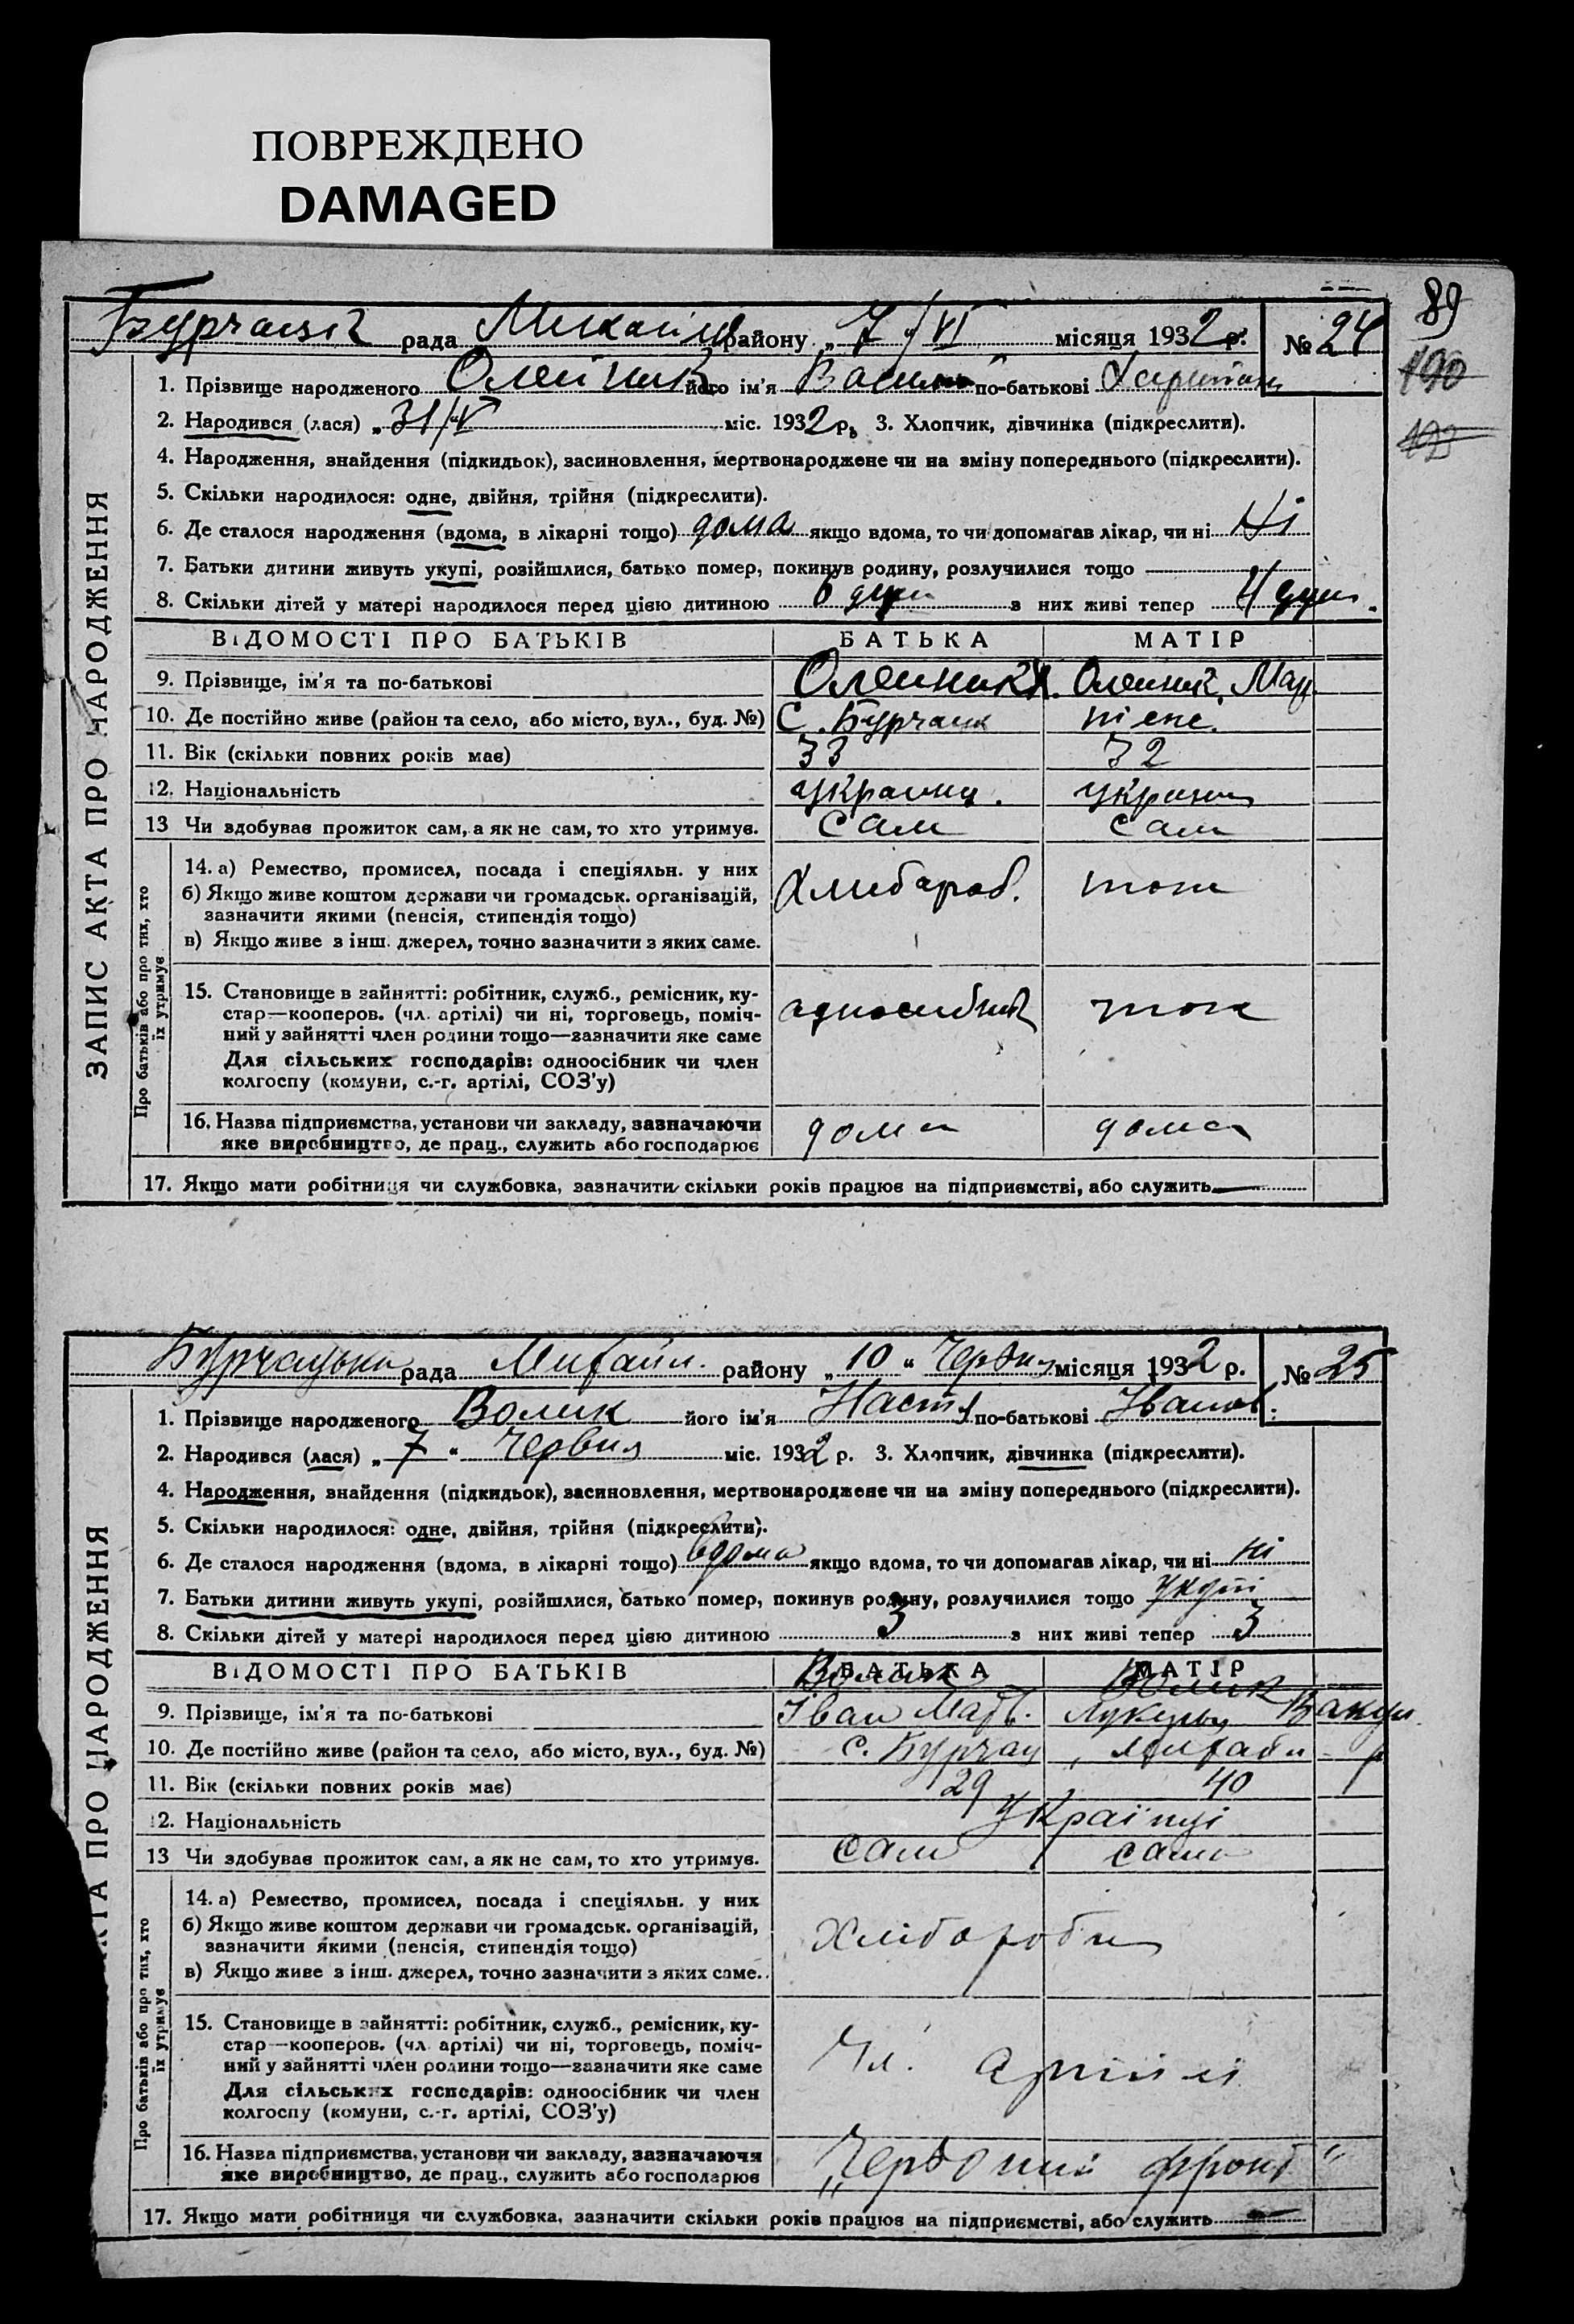 ПОВРЕЖДЕНО
DAMAGED
89
190
рада района „ 7/VI місяця 1932 р. № 24
1. Прізвище народженого Олейник його ім'я по-батькові
2. Народився (лася) „31/V міс. 1932 р. 3. Хлопчик, дівчинка (підкреслити).
4. Народження, знайдення (підкидьок), засиновлення, мертвонароджене чи на зміну попереднього (підкреслити).
5. Скільки народилося: одне, двійня, трійня (підкреслити).
6. Де сталося народження (вдома, в лікарні тощо) дома якщо вдома, то чи допомагав лікар, чи ні Ні
7. Батьки дитини живуть укупі, розійшлися, батько помер, покинув родину, розлучилися тощо —
8. Скільки дітей у матері народилося перед цією дитиною 6 душ з них живі тепер 4 душ.
ЗАПИС АКТА ПРО НАРОДЖЕННЯ
ВІДОМОСТІ ПРО БАТЬКІВ БАТЬКА МАТІР
9. Прізвище, ім'я та по-батькові Олейник Х. Олейник Мар.
10. Де постійно живе (район та село, або місто, вул., буд. №) С. Бурчацк
11. Вік (скільки повних років має) 33 32
12. Національність украинц.
13 Чи здобував прожиток сам, а як не сам, то хто утримув. Сам Сам
Про батьків або про тих, хто їх утримує
14. а) Ремество, промисел, посада і спеціяльн. у них
б) Якщо живе коштом держави чи громадськ. організацій,
зазначити якими (пенсія, стипендія тощо)
Хлибароб. тоже
в) Якщо живе з інш. джерел, точно зазначити з яких саме.
15. Становище в зайнятті: робітник, служб., ремісник, ку-
стар—кооперов. (чл. артілі) чи ні, торговець, поміч-
ний у зайнятті член родини тощо—зазначити яке саме
Для сільських господарів: одноосібник чи член
колгоспу (комуни, с.-г. артілі, СОЗ'у)
тоже
16. Назва підприємства, установи чи закладу, зазначаючи
яке виробництво, де прац., служить або господарює
дома дома
17. Якщо мати робітниця чи службовка, зазначити скільки років працює на підприємстві, або служить —
Бурчацька рада Михайл. району „ 10 “ Червня місяця 1932 р. № 25
1. Прізвище народженого Волик його ім'я Настя по-батькові Іванов.
2. Народився (лася) „ 7 “ Червня міс. 1932 р. 3. Хлопчик, дівчинка (підкреслити).
4. Народження, знайдення (підкидьок), засиновлення, мертвонароджене чи на зміну попереднього (підкреслити).
5. Скільки народилося: одне, двійня, трійня (підкреслити).
6. Де сталося народження (вдома, в лікарні тощо) вдома якщо вдома, то чи допомагав лікар, чи ні ні
7. Батьки дитини живуть укупі, розійшлися, батько помер, покинув родину, розлучилися тощо укупі
8. Скільки дітей у матері народилося перед цією дитиною 3 з них живі тепер 3
КТА ПРО НАРОДЖЕННЯ
ВІДОМОСТІ ПРО БАТЬКІВ БАТЬКА МАТІР
Волик Волик
9. Прізвище, ім'я та по-батькові Іван Матв. Лукерья Вакул.
10. Де постійно живе (район та село, або місто, вул., буд. №) с. Бурчац
11. Вік (скільки повних років має) 29 40
12. Національність Українці
13 Чи здобував прожиток сам, а як не сам, то хто утримув. Сам сама
Про батьків або про тих, хто їх утримує
14. а) Ремество, промисел, посада і спеціяльн. у них
б) Якщо живе коштом держави чи громадськ. організацій,
зазначити якими (пенсія, стипендія тощо)
Хлібороби
в) Якщо живе з інш. джерел, точно зазначити з яких саме.
15. Становище в зайнятті: робітник, служб., ремісник, ку-
стар—кооперов. (чл. артілі) чи ні, торговець, поміч-
ний у зайнятті член родини тощо—зазначити яке саме
Для сільських господарів: одноосібник чи член
колгоспу (комуни, с.-г. артілі, СОЗ'у)
Чл. Артілі
16. Назва підприємства, установи чи закладу, зазначаючи
яке виробництво, де прац., служить або господарює
„Червоний фронт“
17. Якщо мати робітниця чи службовка, зазначити скільки років працює на підприємстві, або служить —